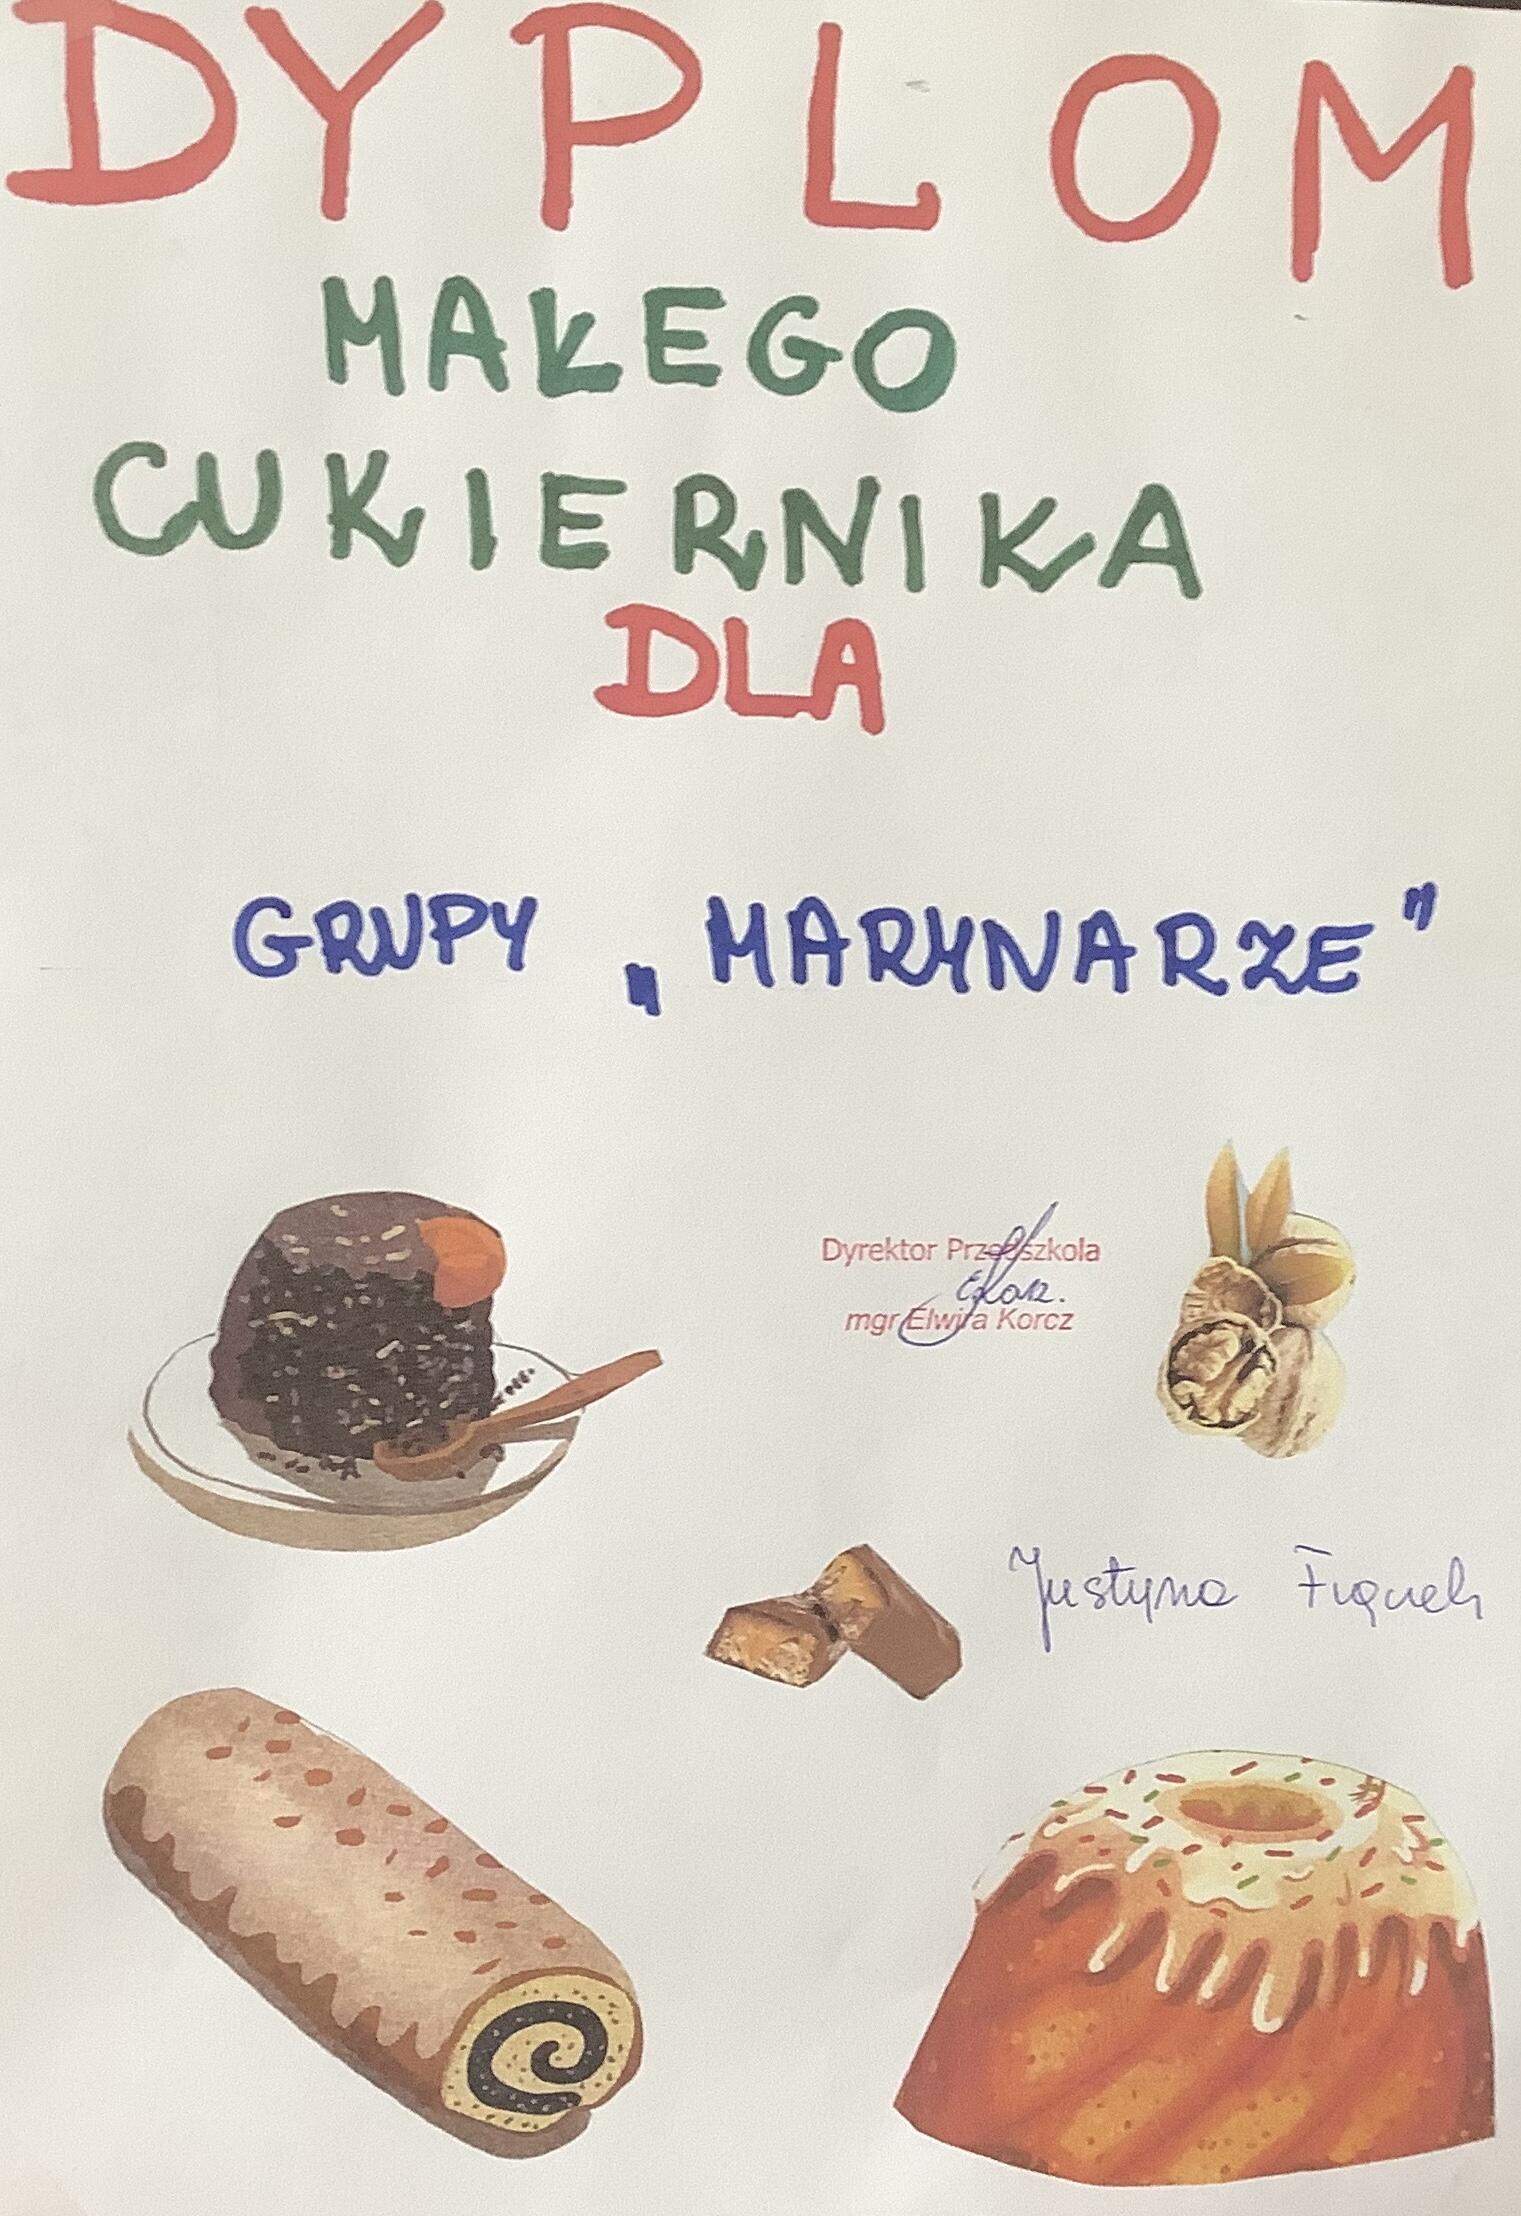 DYPLOM
MAŁEGO
CUKIERNIKA
DLA
GRUPY „MARYNARZE”
Dyrektor Przedszkola
mgr Elwira Korcz
Justyna